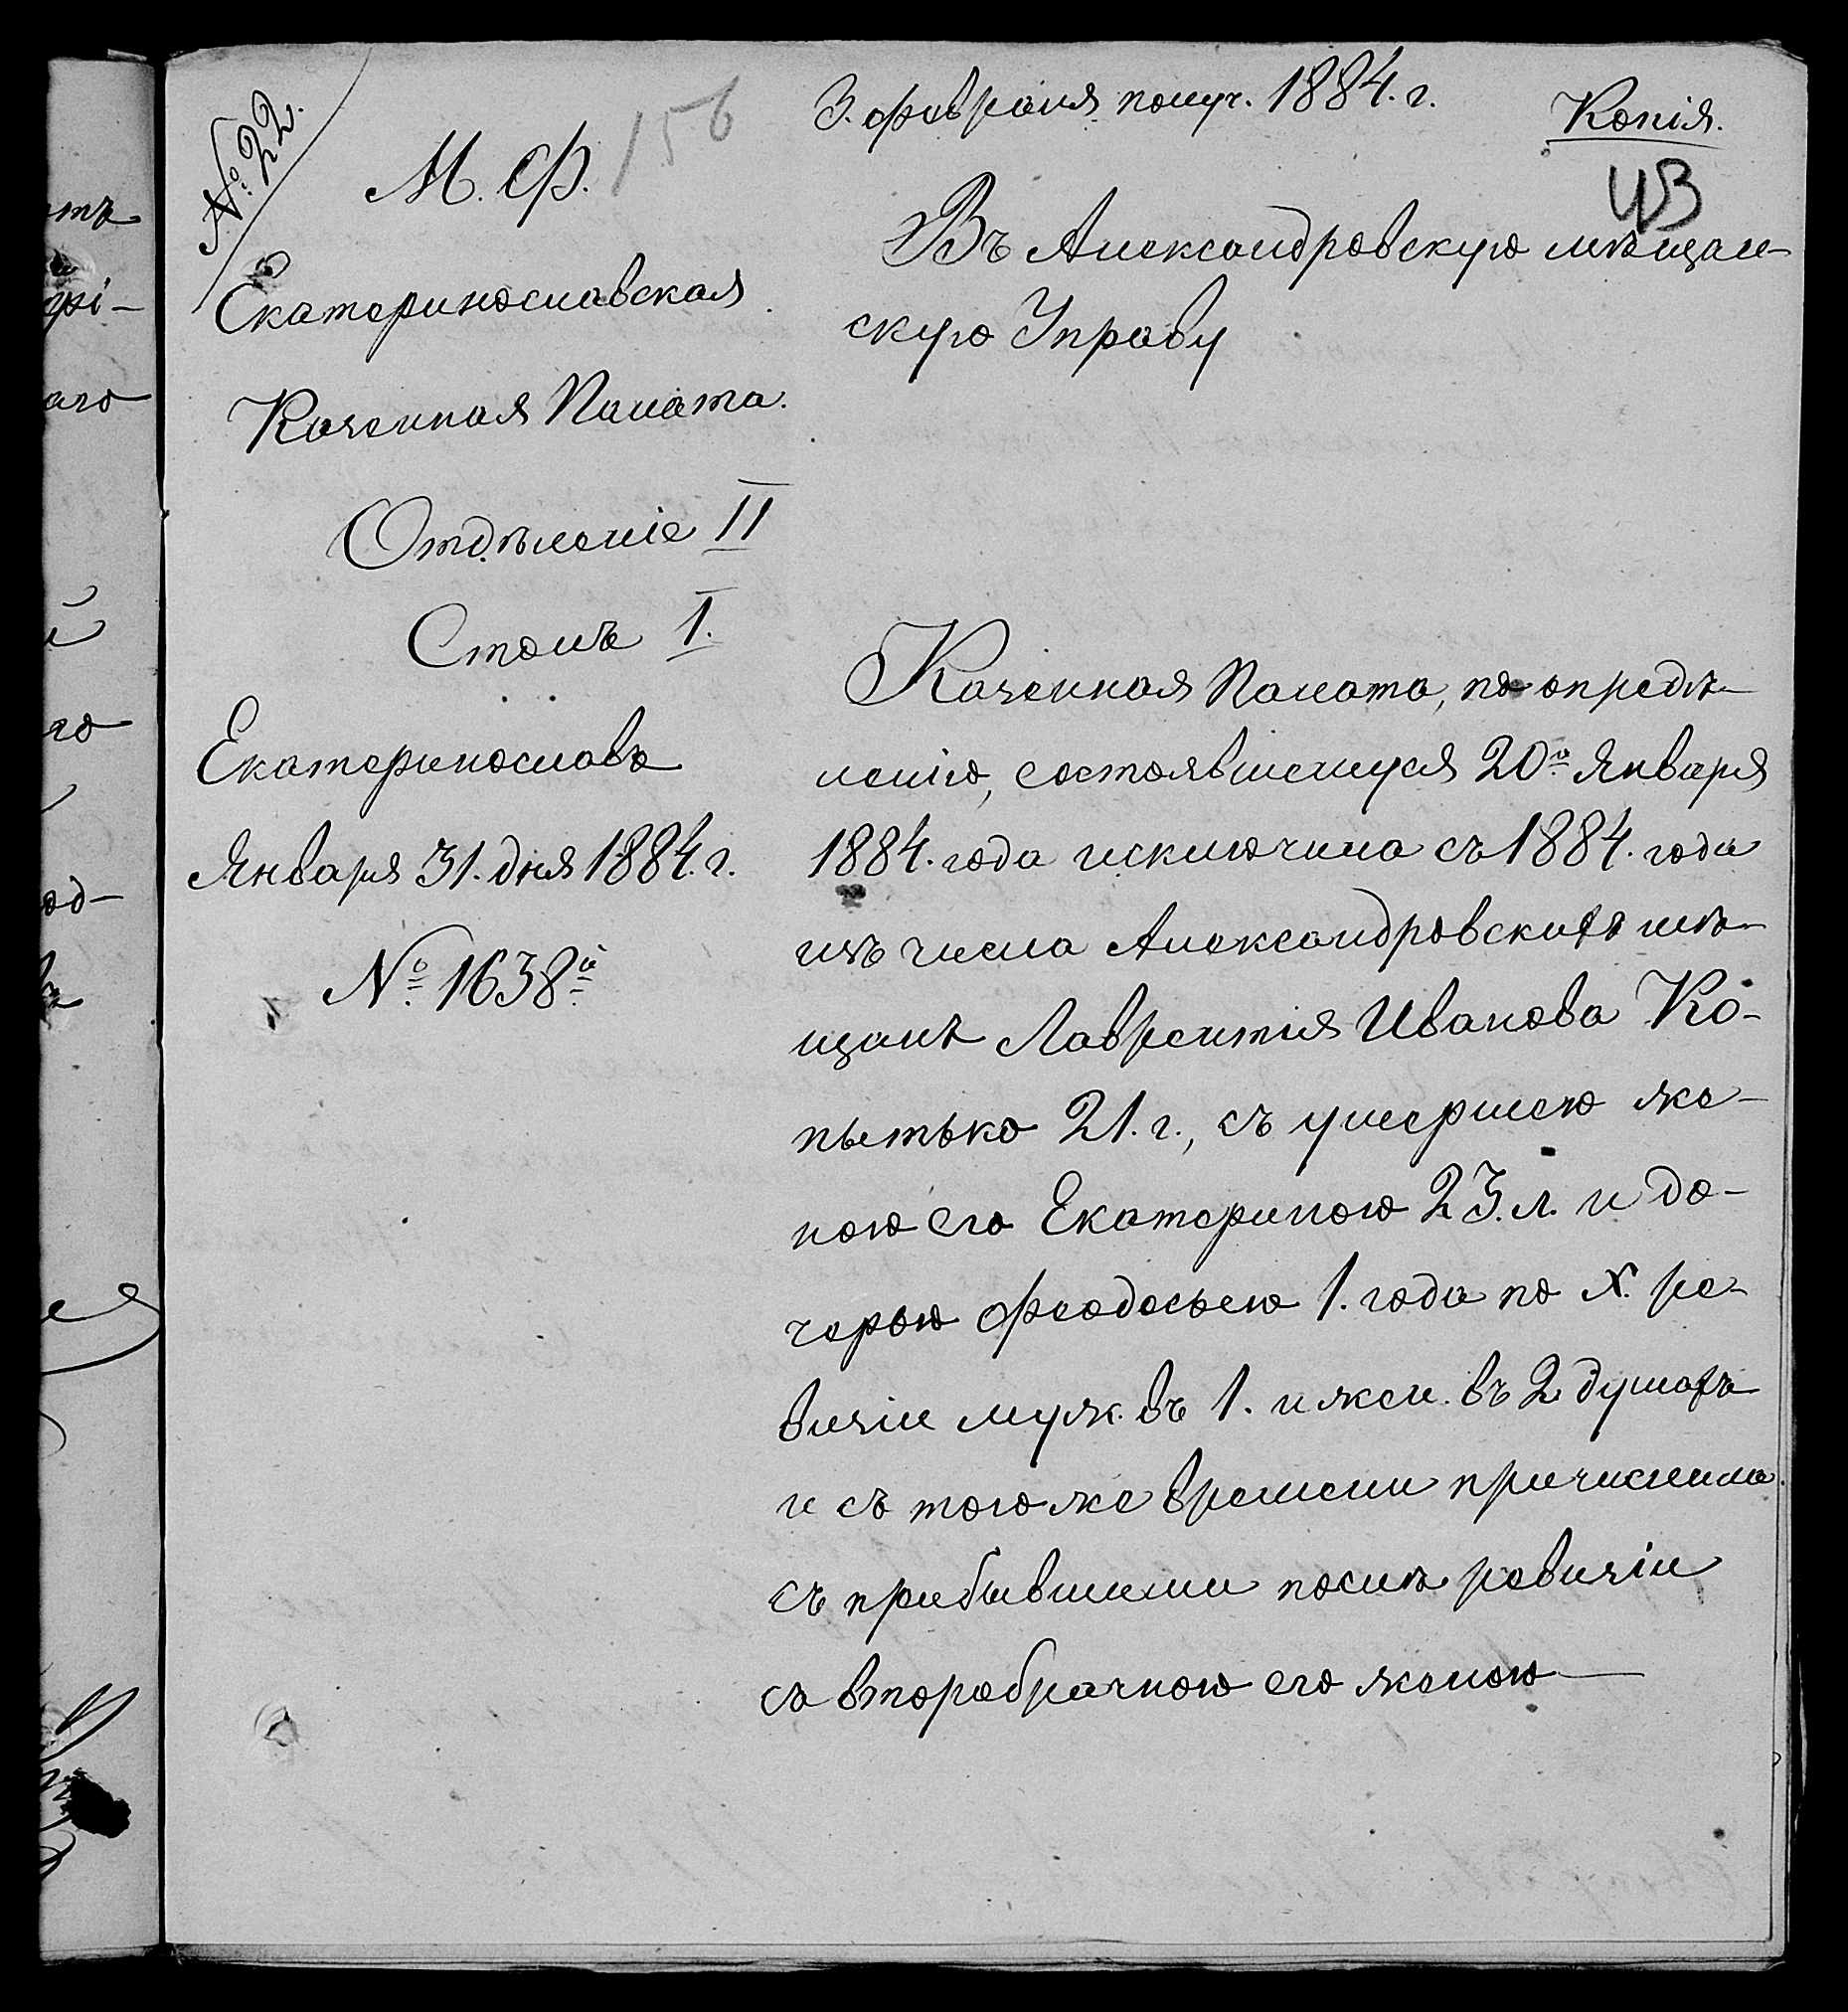 № 22.
М. Ф.
156
Екатеринославская
Казенная Палата.
Отдѣленіе II
Столъ I.
Екатеринославъ
Января 31. дня 1884. г.
№ 1638й
3. февраля получ. 1884. г.
Копія.
Въ Александровскую мѣщан-
скую Управу
Казенная Палата, по опредѣ-
ленію, состоявшемуся 20го Января
1884. года исключила съ 1884. года
изъ числа Александровскихъ мѣ-
щанъ Лаврентія Иванова Ко-
пытько 21. г., съ умершею же-
ною его Екатериною 23. л. и до-
черью Феодосьею 1. года по X. ре-
визіи муж. въ 1. и жен. въ 2 душахъ
и съ того же времени причислила
съ прибывшими послѣ ревизіи
съ второбрачною его женою